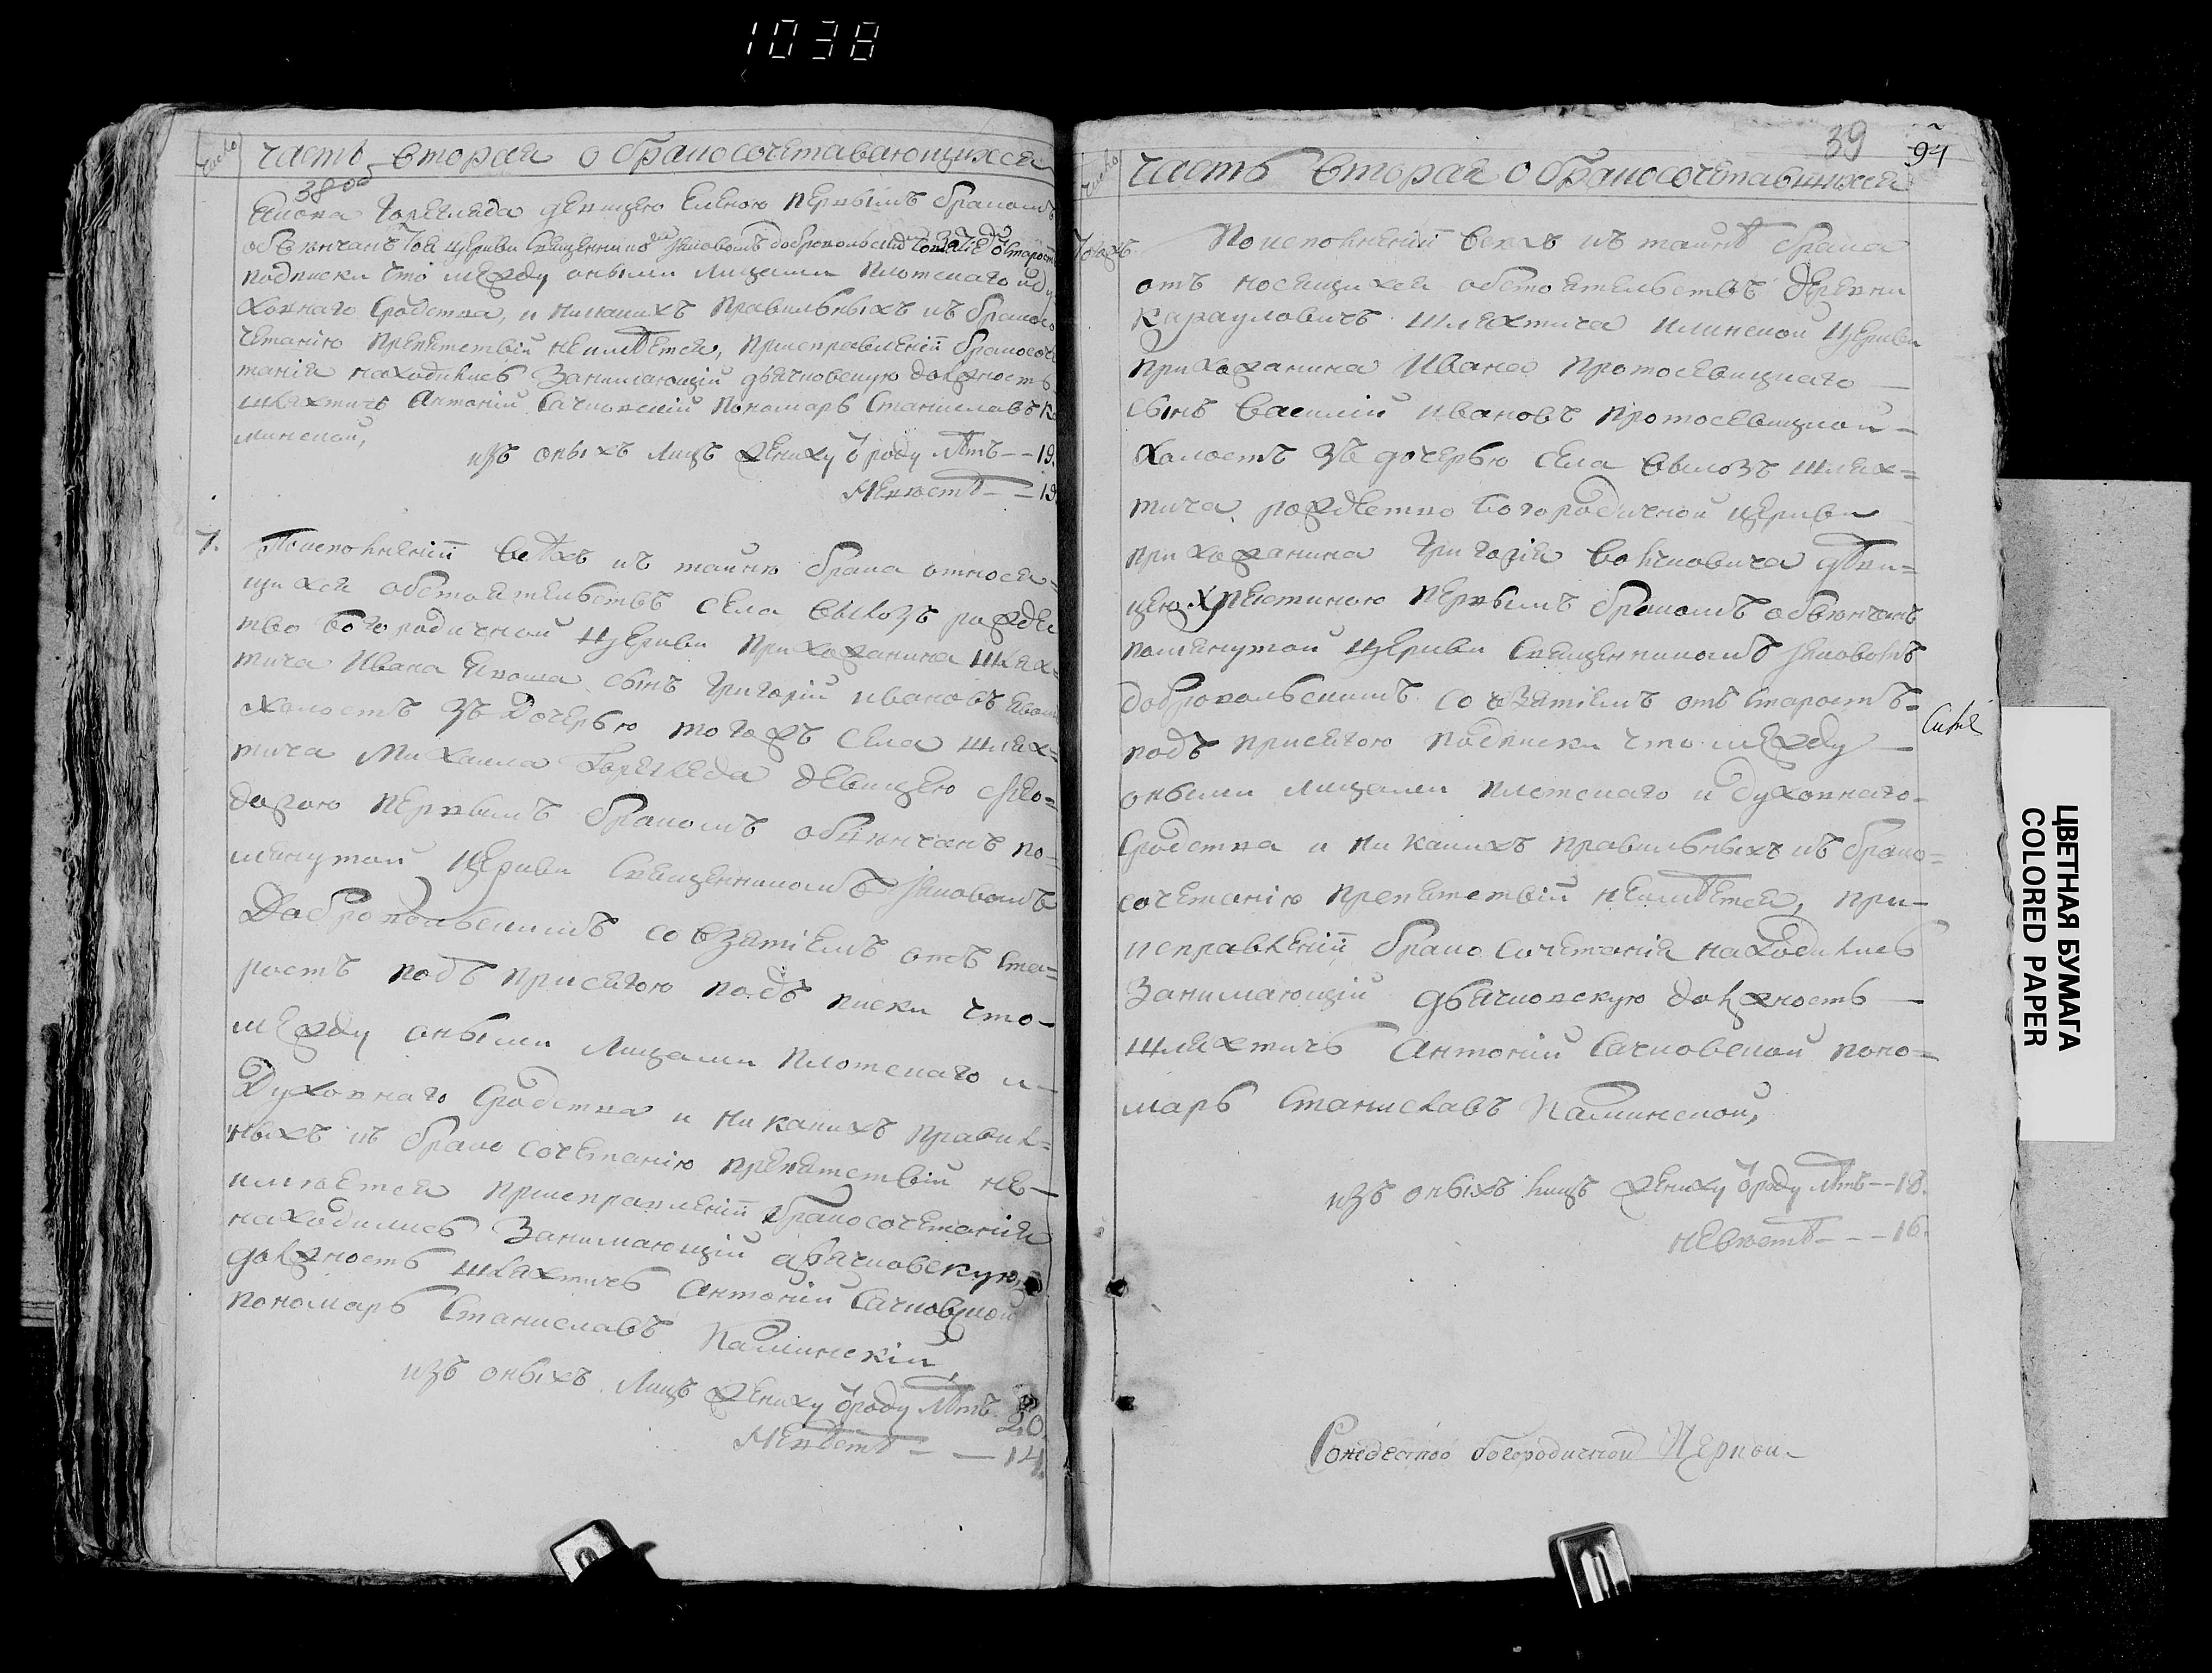 1038
число
часть вторая о браносочетавающихся
38 об
Якова Горегляда девицею Еленою первымъ бракомъ
обвѣнчанъ той церкви священникомъ Яковомъ Добропольскимъ
подписки что между оными лицами плотскаго и ду
ховнаго сродства, и никакихъ правильныхъ къ бракосо
четанію препятствій неимѣется, приисправленіи бракосоче
танія находились Занимающій дьячковскую должность
шляхтичъ Антоній Сачковскій пономарь Станиславъ Ка
минской,
изъ оныхъ лицъ жениху ѿ роду лѣтъ — 19.
Невѣстѣ — 19
7.
Поисполненіи всѣхъ къ тайнѣ брака относя=
щихся обстоятельствъ села Вылозъ рождес
тво Богородичной Церкви прихожанина шлях=
тича Ивана сынъ Григорій Ивановъ
холостъ зъ Дочерью тогожъ села шлях=
тича Михаила Горегляда девицею Ѳео=
дорою первымъ бракомъ обвѣнчанъ по=
мянутой Церкви Священникомъ Яковомъ
Добропольскимъ со взятіемъ отъ ста=
ростъ подъ присягою подъ писки что—
между оными лицами плотскаго и—
Духовнаго Сродства и никакихъ правил=
ныхъ къ брако сочетанію препятствій не—
имѣется приисправленіи бракосочетанія
находились Занимающій дьячковскую
должность шляхтичъ Антоній Сачковской
пономарь Станиславъ Каминскій,
изъ оныхъ лицъ жениху ѿроду лѣтъ 20.
Невѣстѣ — 14.
39
94
число
часть вторая о бракосочетавшихся
Тогожъ.
Поисполненіи всехъ къ тайнѣ брака
отъ носящихся обстоятельствъ деревни
Карауловичъ шляхтича Илинской Церкви
прихожанина Ивана Протосевицкаго —
сынъ Василій Ивановъ Протосевицкой —
Холостъ зъ дочерью села Вылозъ шлях=
тича рождество Богородичной церкви
прихожанина Григорія Волчковича дѣви=
цею Христиною первымъ бракомъ обвѣнчанъ
помянутой Церкви Священникомъ Яковомъ
Доброполъскимъ со взятіемъ отъ старостъ=
подъ присягою подписки что между —
оными лицами плотскаго и духовнаго=
Сродства и ни какихъ правильныхъ къ брако=
сочетанію препятствій неимѣется, при—
исправленіи брако сочетанія находились
Занимающій дьячковскую должность —
шляхтичъ Антоній Сачковской поно=
марь Станиславъ Каминской,
изъ оныхъ лицъ жениху ѿроду лѣтъ — 18.
невѣстѣ — — 16.
Рождество богородичной Церкви
ЦВЕТНАЯ БУМАГА
COLORED PAPER